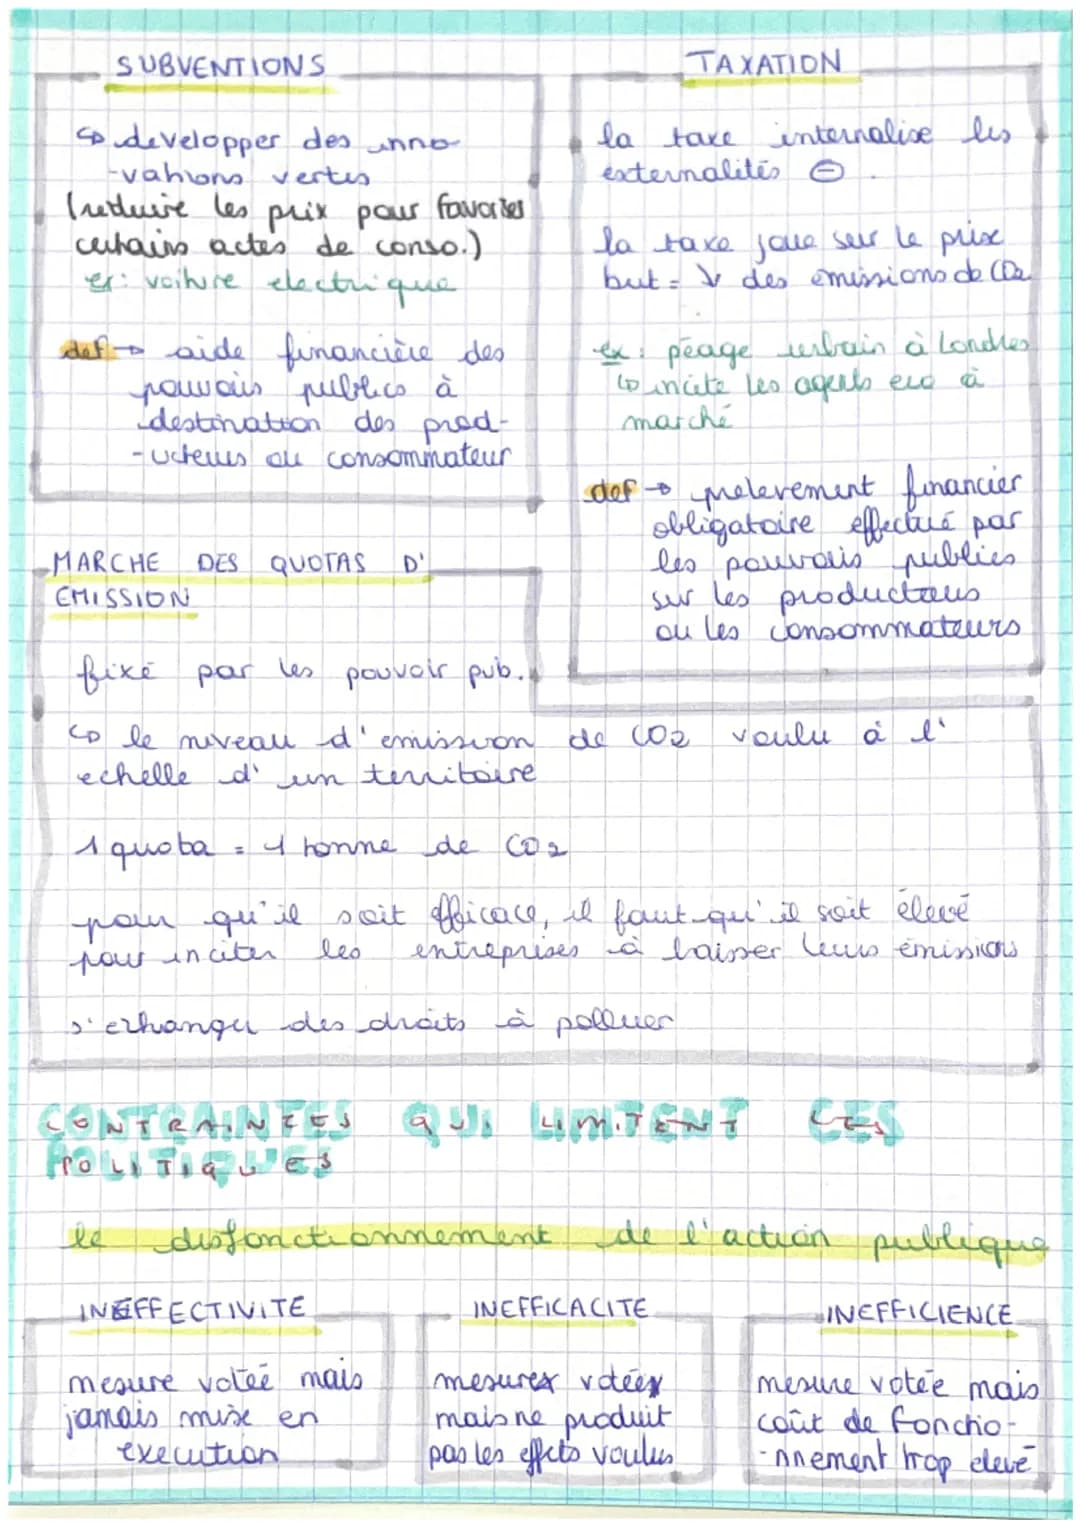 SUBVENTIONS
↳ developper des inno
-vations vertes
(reduire les prix pour favoriser
certains actes de conso.)
ex: voiture electrique
def → aide financière des
pouvoirs publics à
destination des prod-
-ucteurs ou consommateur
TAXATION
la taxe internalise les
externalités ⊖.
la taxe joue sur le prix
but = ↓ des émissions de CO2
ex: péage urbain à Londres
↳ incite les agents eco à
marché
def → prelevement financier
obligatoire effectué par
les pouvoirs publics
sur les producteurs
ou les consommateurs
MARCHE DES QUOTAS D'
EMISSION
fixé par les pouvoir pub.
↳ le niveau d'emission de CO2 voulu à l'
echelle d'un territoire
1 quota = 1 tonne de CO2
pour qu'il soit efficace, il faut qu'il soit élevé
pour inciter les entreprises à baisser leurs émissions
s'echanger des droits à polluer
CONTRAINTES QUI LIMITENT CES
POLITIQUES
le disfonctionnement de l'action publique
INEFFECTIVITE
mesure voteé mais
jamais mise en
execution
INEFFICACITE
mesures votées
mais ne produit
pas les effets voulus
INEFFICIENCE
mesure votée mais
coût de fonctio-
-nnement trop elevé